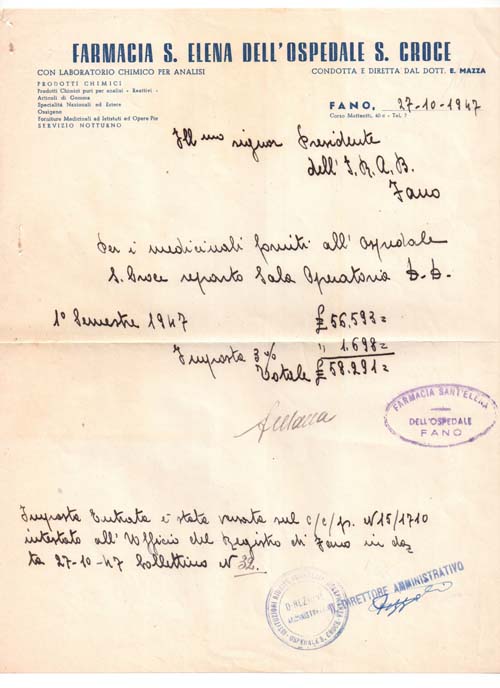 FARMACIA S. ELENA DELL'OSPEDALE S. CROCE
CON LABORATORIO CHIMICO PER ANALISI
CONDOTTA E DIRETTA DAL DOTT. E. MAZZA
PRODOTTI CHIMICI
Prodotti Chimici puri per analisi - Reattivi -
Articoli di Gomma
Specialità Nazionali ed Estere
Ossigeno
Forniture Medicinali ad Istituti ed Opere Pie
SERVIZIO NOTTURNO
FANO, 27-10-1947
Corso Matteotti, - Tel.
Ill mo signor Presidente
dell'I.R.A.B.
Fano
Per i medicinali forniti all'Ospedale
S. Croce reparto Sala Operatoria
1° Semestre 1947 £ 56.593=
Imposta 3% " 1.698=
Totale £ 58.291=
FARMACIA SANT'ELENA
DELL'OSPEDALE
FANO
Imposta Entrata è stata versata sul c/c/p. N 15/1710
intestato all'Ufficio del Registro di Fano in da
ta 27-10-47 bollettino N° 32.
IL DIRETTORE AMMINISTRATIVO
OSPEDALE S. CROCE